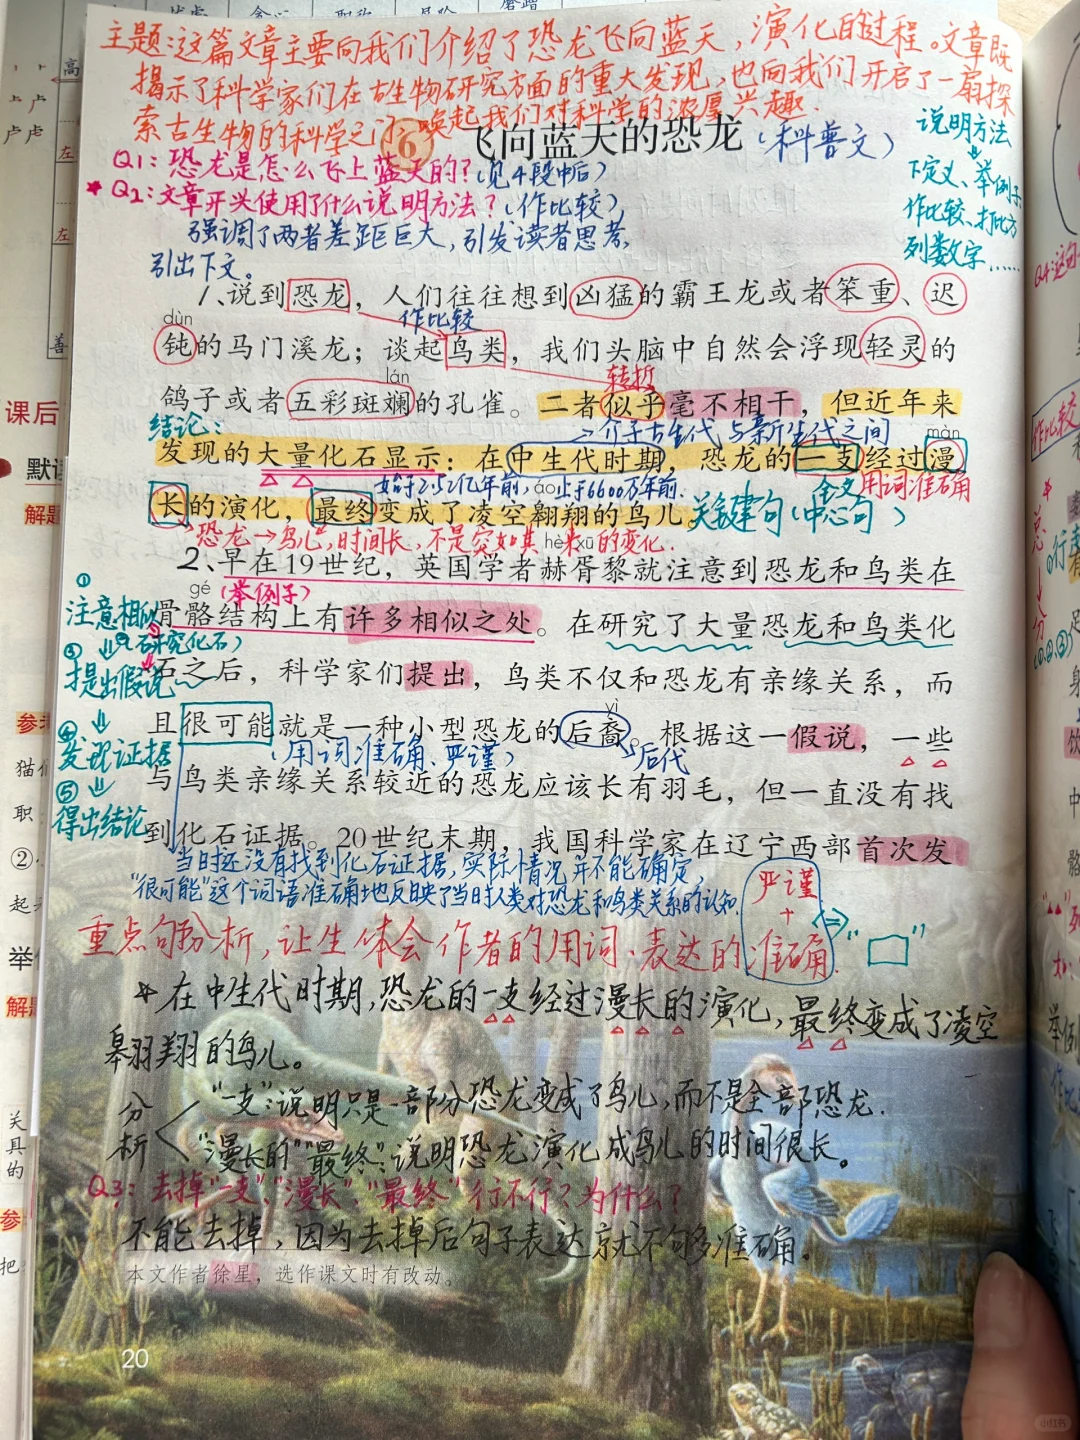 主题:这篇文章主要向我们介绍了恐龙飞向蓝天,演化的过程。文章既
揭示了科学家们在古生物研究方面的重大发现,也向我们开启了一扇探
索古生物的科学之门,唤起我们对科学的浓厚兴趣.
6 飞向蓝天的恐龙(科普文)
说明方法
下定义、举例子
作比较、打比方
列数字……
Q1:恐龙是怎么飞上蓝天的?(见4段中后)
Q2:文章开头使用了什么说明方法?(作比较)
强调了两者差距巨大,引发读者思考,
引出下文。
1、说到恐龙,人们往往想到凶猛的霸王龙或者笨重、迟
dùn 作比较
钝的马门溪龙;谈起鸟类,我们头脑中自然会浮现轻灵的
lán 转折
鸽子或者五彩斑斓的孔雀。二者似乎毫不相干,但近年来
结论: →介于古生代与新生代之间 màn
发现的大量化石显示:在中生代时期,恐龙的一支经过漫
始于2.52亿年前, áo 止于6600万年前. 用词准确
长的演化,最终变成了凌空翱翔的鸟儿。关键句(中心句)
恐龙→鸟儿,时间长,不是突如其来的变化.
hè xū
2、早在19世纪,英国学者赫胥黎就注意到恐龙和鸟类在
gé (举例子)
骨骼结构上有许多相似之处。在研究了大量恐龙和鸟类化
石之后,科学家们提出,鸟类不仅和恐龙有亲缘关系,而
yì
且很可能就是一种小型恐龙的后裔。根据这一假说,一些
(用词准确、严谨) 后代
与鸟类亲缘关系较近的恐龙应该长有羽毛,但一直没有找
到化石证据。20世纪末期,我国科学家在辽宁西部首次发
①
注意相似
②(研究化石)
③
提出假说
④
发现证据
⑤
得出结论
当时还没有找到化石证据,实际情况并不能确定,
“很可能”这个词语准确地反映了当时人类对恐龙和鸟类关系的认知.
严谨
+
准确
重点句分析,让生体会作者的用词、表达的准确.
在中生代时期,恐龙的一支经过漫长的演化,最终变成了凌空
翱翔的鸟儿。
分析
“一支”:说明只是一部分恐龙变成了鸟儿,而不是全部恐龙.
“漫长的”“最终”:说明恐龙演化成鸟儿的时间很长。
Q3:去掉“一支”、“漫长”、“最终”行不行?为什么?
不能去掉,因为去掉后句子表达就不够准确。
本文作者徐星,选作课文时有改动。
20
课后
默读
解题
参考
猫
职
②
起
举
解题
关
具
的
参
把
作比较
总
↓
分
举例
小红书